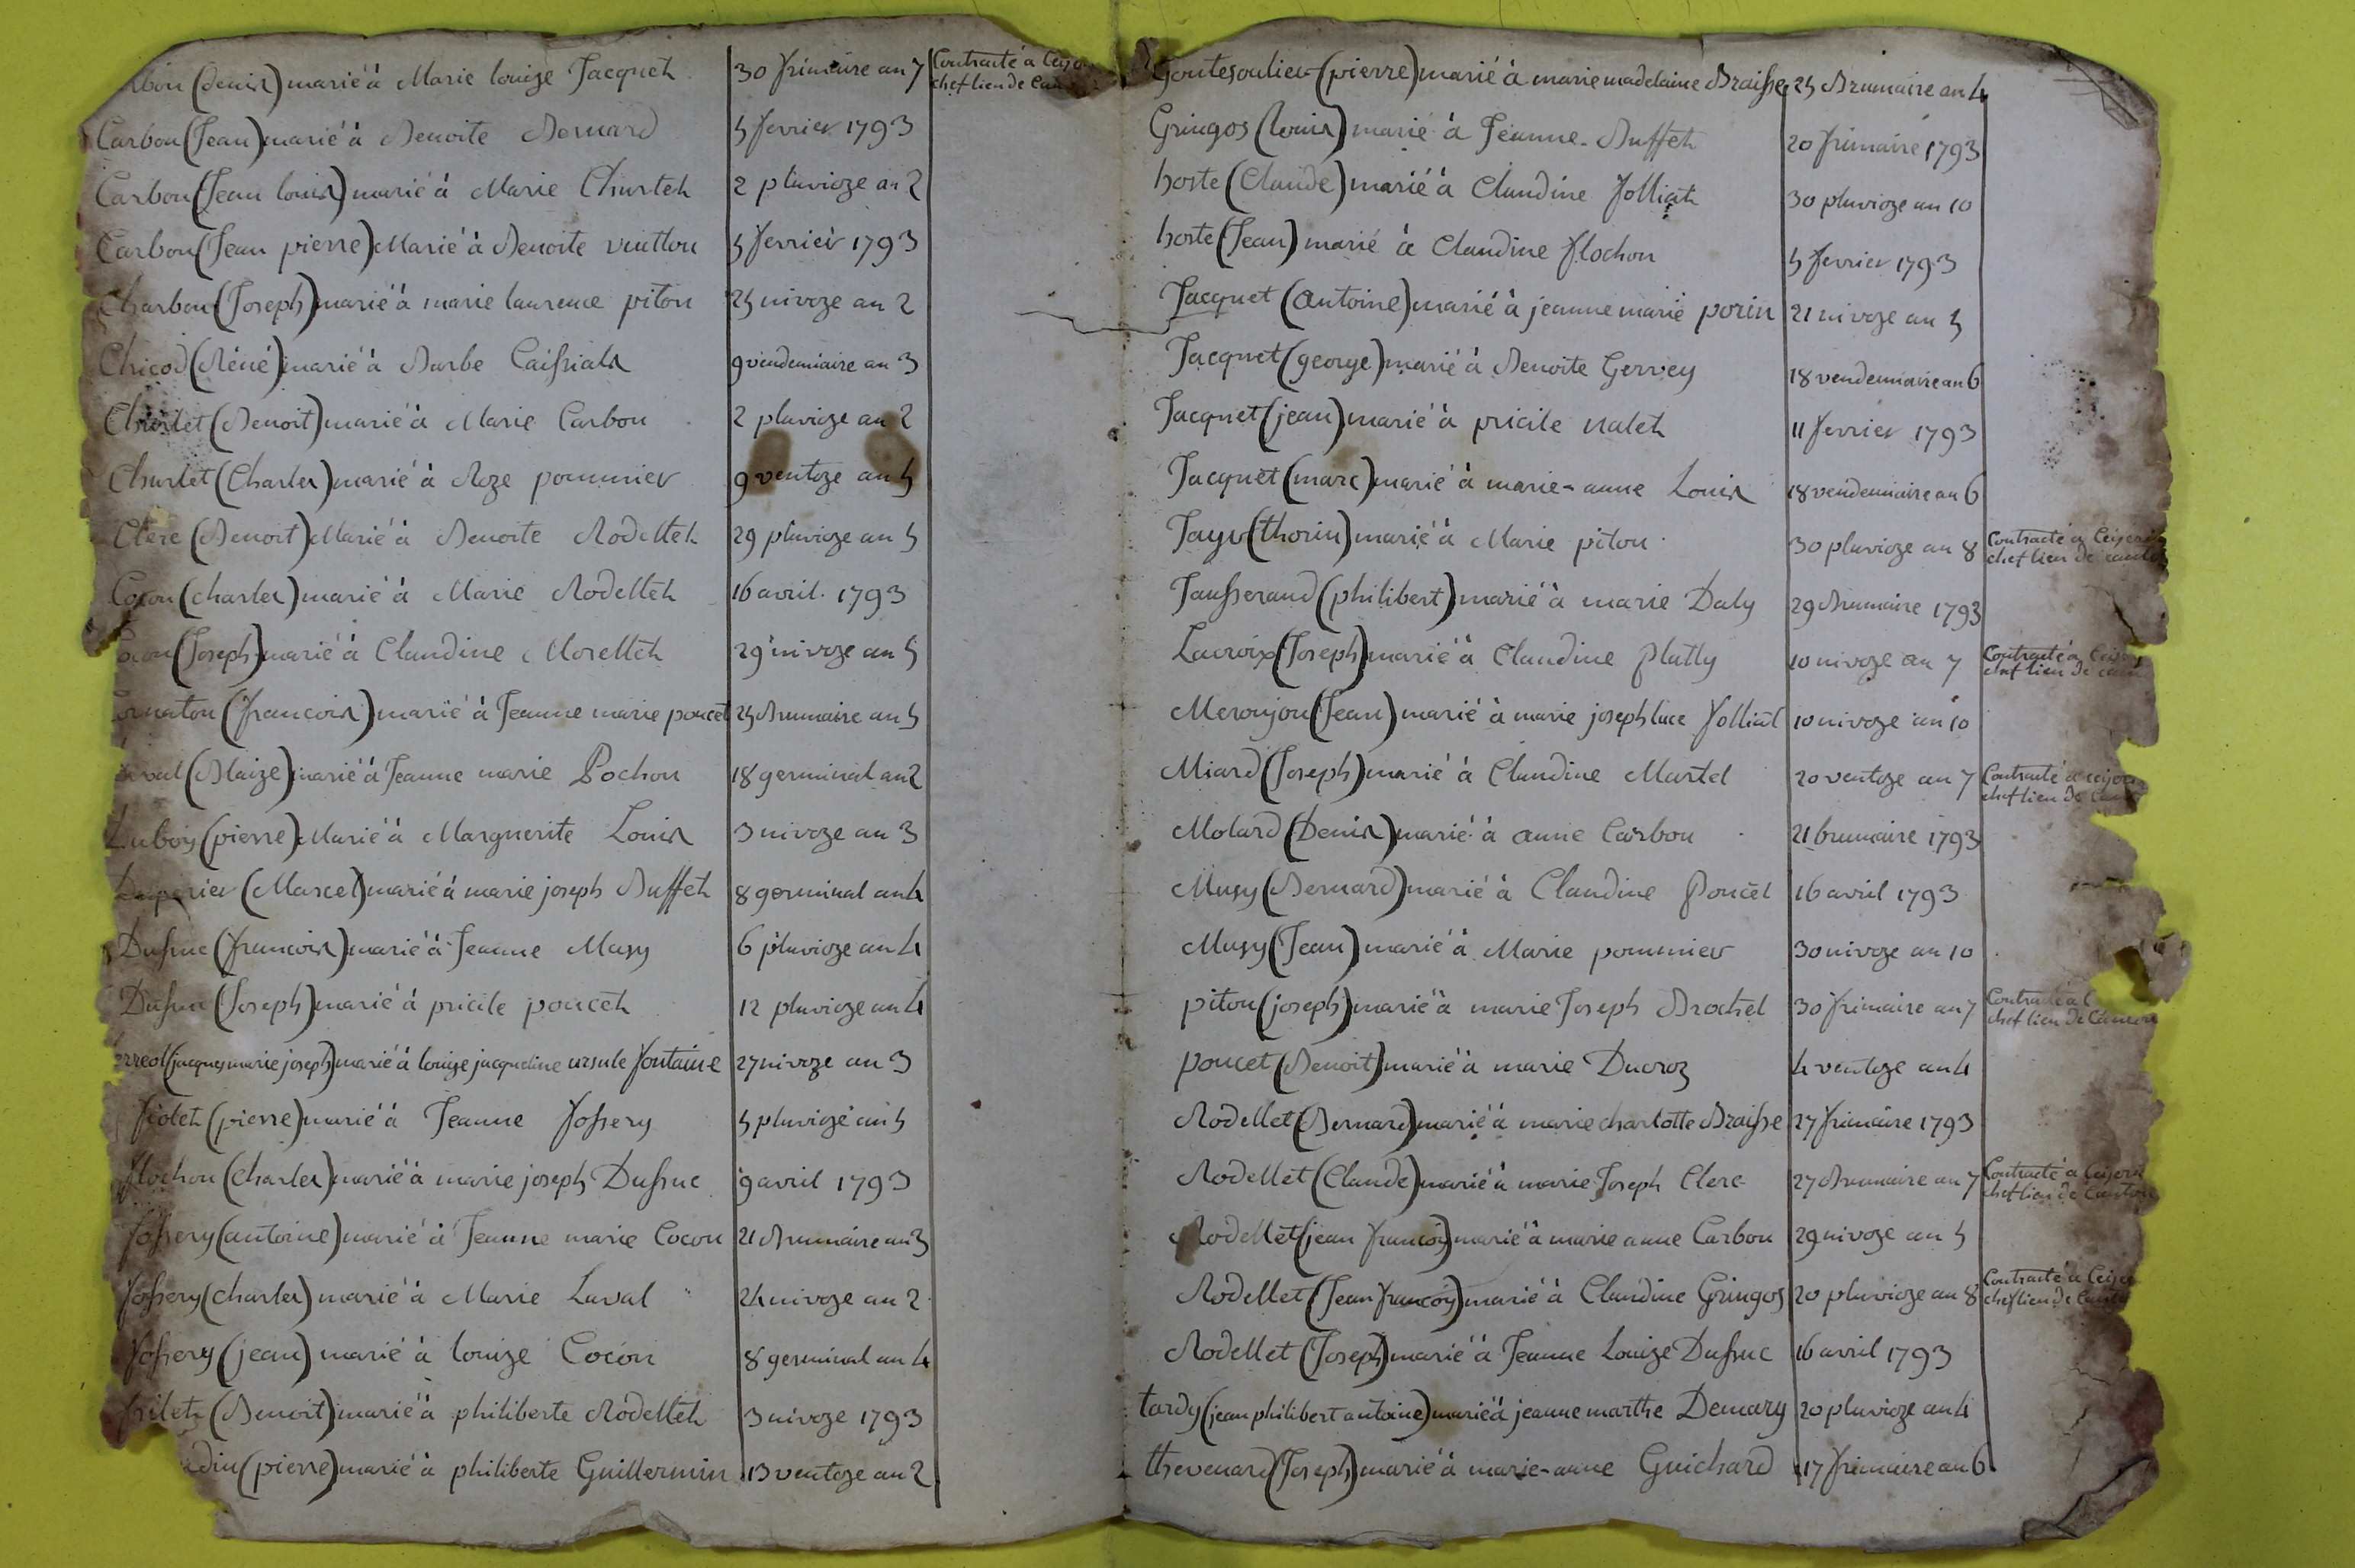 (denis) marié à Marie louize Jacquet 30 frimaire an 7 Contracté à
chef lieu de
Carbon (Jean) marié à Benoite Bernard 5 fevrier 1793
Carbon (Jean louis) marié à Marie Churlet 2 pluvioze an 2
Carbon (Jean pierre) Marié à Benoite vuillon 5 fevrier 1793
Charbon (Joseph) marié à marie laurence piton 25 nivoze an 2
Chicod (Réné) marié à Barbe Caissials 9 vendemiaire an 3
Churlet (Benoit) marié à Marie Carbon 2 pluvioze an 2
Churlet (Charles) marié à Roze pommier 9 ventoze an 5
Clere (Benoit) Marié à Benoite Rodellet 29 pluvioze an 5
Cocon (charles) marié à Marie Rodellet 16 avril 1793
(Joseph) marié à Claudine Morellet 29 nivoze an 5
(francois) marié à Jeanne marie poncet 25 Brumaire an 5
(Blaize) marié à Jeanne marie Pochon 18 germinal an 2
Dubois (pierre) Marié à Marguerite Louis 3 nivoze an 3
(Marcel) marié à marie joseph Buffet 8 germinal an 4
Dufruc (francois) marié à Jeanne Musy 6 pluvioze an 4
Dufruc (Joseph) marié à pricile poncet 12 pluvioze an 4
(jacques marie joseph) marié à louize jacqueline ursule fontaine 27 nivoze an 3
(pierre) marié à Jeanne Jossery 5 pluvioze an 5
flochon (charles) marié à marie joseph Dufruc 9 avril 1793
Jossery (antoine) marié à Jeanne marie Cocon 21 Brumaire an 3
Jossery (charles) marié à Marie Laval 24 nivoze an 2
Jossery (jean) marié à louize Cocon 8 germinal an 4
(Benoit) marié à philiberte Rodellet 3 nivoze 1793
(pierre) marié à philiberte Guillermin 13 ventoze an 2
Goutesoulier (pierre) marié à marie madelaine Braisse 25 Brumaire an 4
Gringos (louis) marié à Jeanne Buffet 20 frimaire 1793
hoste (Claude) marié à Claudine folliat 30 pluvioze an 10
hoste (Jean) marié à Claudine flochon 5 fevrier 1793
Jacquet (antoine) marié à jeanne marie porin 21 nivoze an 5
Jacquet (george) marié à Benoite Gervey 18 vendemiaire an 6
Jacquet (jean) marié à pricile nalet 11 fevrier 1793
Jacquet (marc) marié à marie-anne Louis 18 vendemiaire an 6
Jayr (thorin) marié à Marie piton 30 pluvioze an 8 Contracté à
chef lieu de canton
Jausserand (philibert) marié à marie Daly 29 Brumaire 1793
Lacroix (Joseph) marié à Claudine platty 10 nivoze an 7 Contracté à
chef lieu de
Meronjon (Jean) marié à marie joseph luce folliat 10 nivoze an 10
Miard (Joseph) marié à Claudine Martel 20 ventoze an 7 Contracté à
chef lieu de
Molard (Denis) marié à anne Carbon 21 brumaire 1793
Musy (Bernard) marié à Claudine Poncet 16 avril 1793
Musy (Jean) marié à Marie pommier 30 nivoze an 10
piton (joseph) marié à marie Joseph Brochet 30 frimaire an 7 Contracté à
chef lieu de Canton
poncet (Benoit) marié à marie Ducroz 4 ventoze an 4
Rodellet (Bernard) marié à marie charlotte Braisse 27 frimaire 1793
Rodellet (Claude) marié à marie Joseph Clerc 27 Brumaire an 7 Contracté à
chef lieu de Canton
Rodellet (jean francois) marié à marie anne Carbon 29 nivoze an 5
Rodellet (Jean francois) marié à Claudine Gringos 20 pluvioze an 8 Contracté à
chef lieu de
Rodellet (Joseph) marié à Jeanne Louize Dufruc 16 avril 1793
tardy (jean philibert antoine) marié à jeanne marthe Demary 20 pluvioze an 4
thevenard (Joseph) marié à marie-anne Guichard 17 frimaire an 6